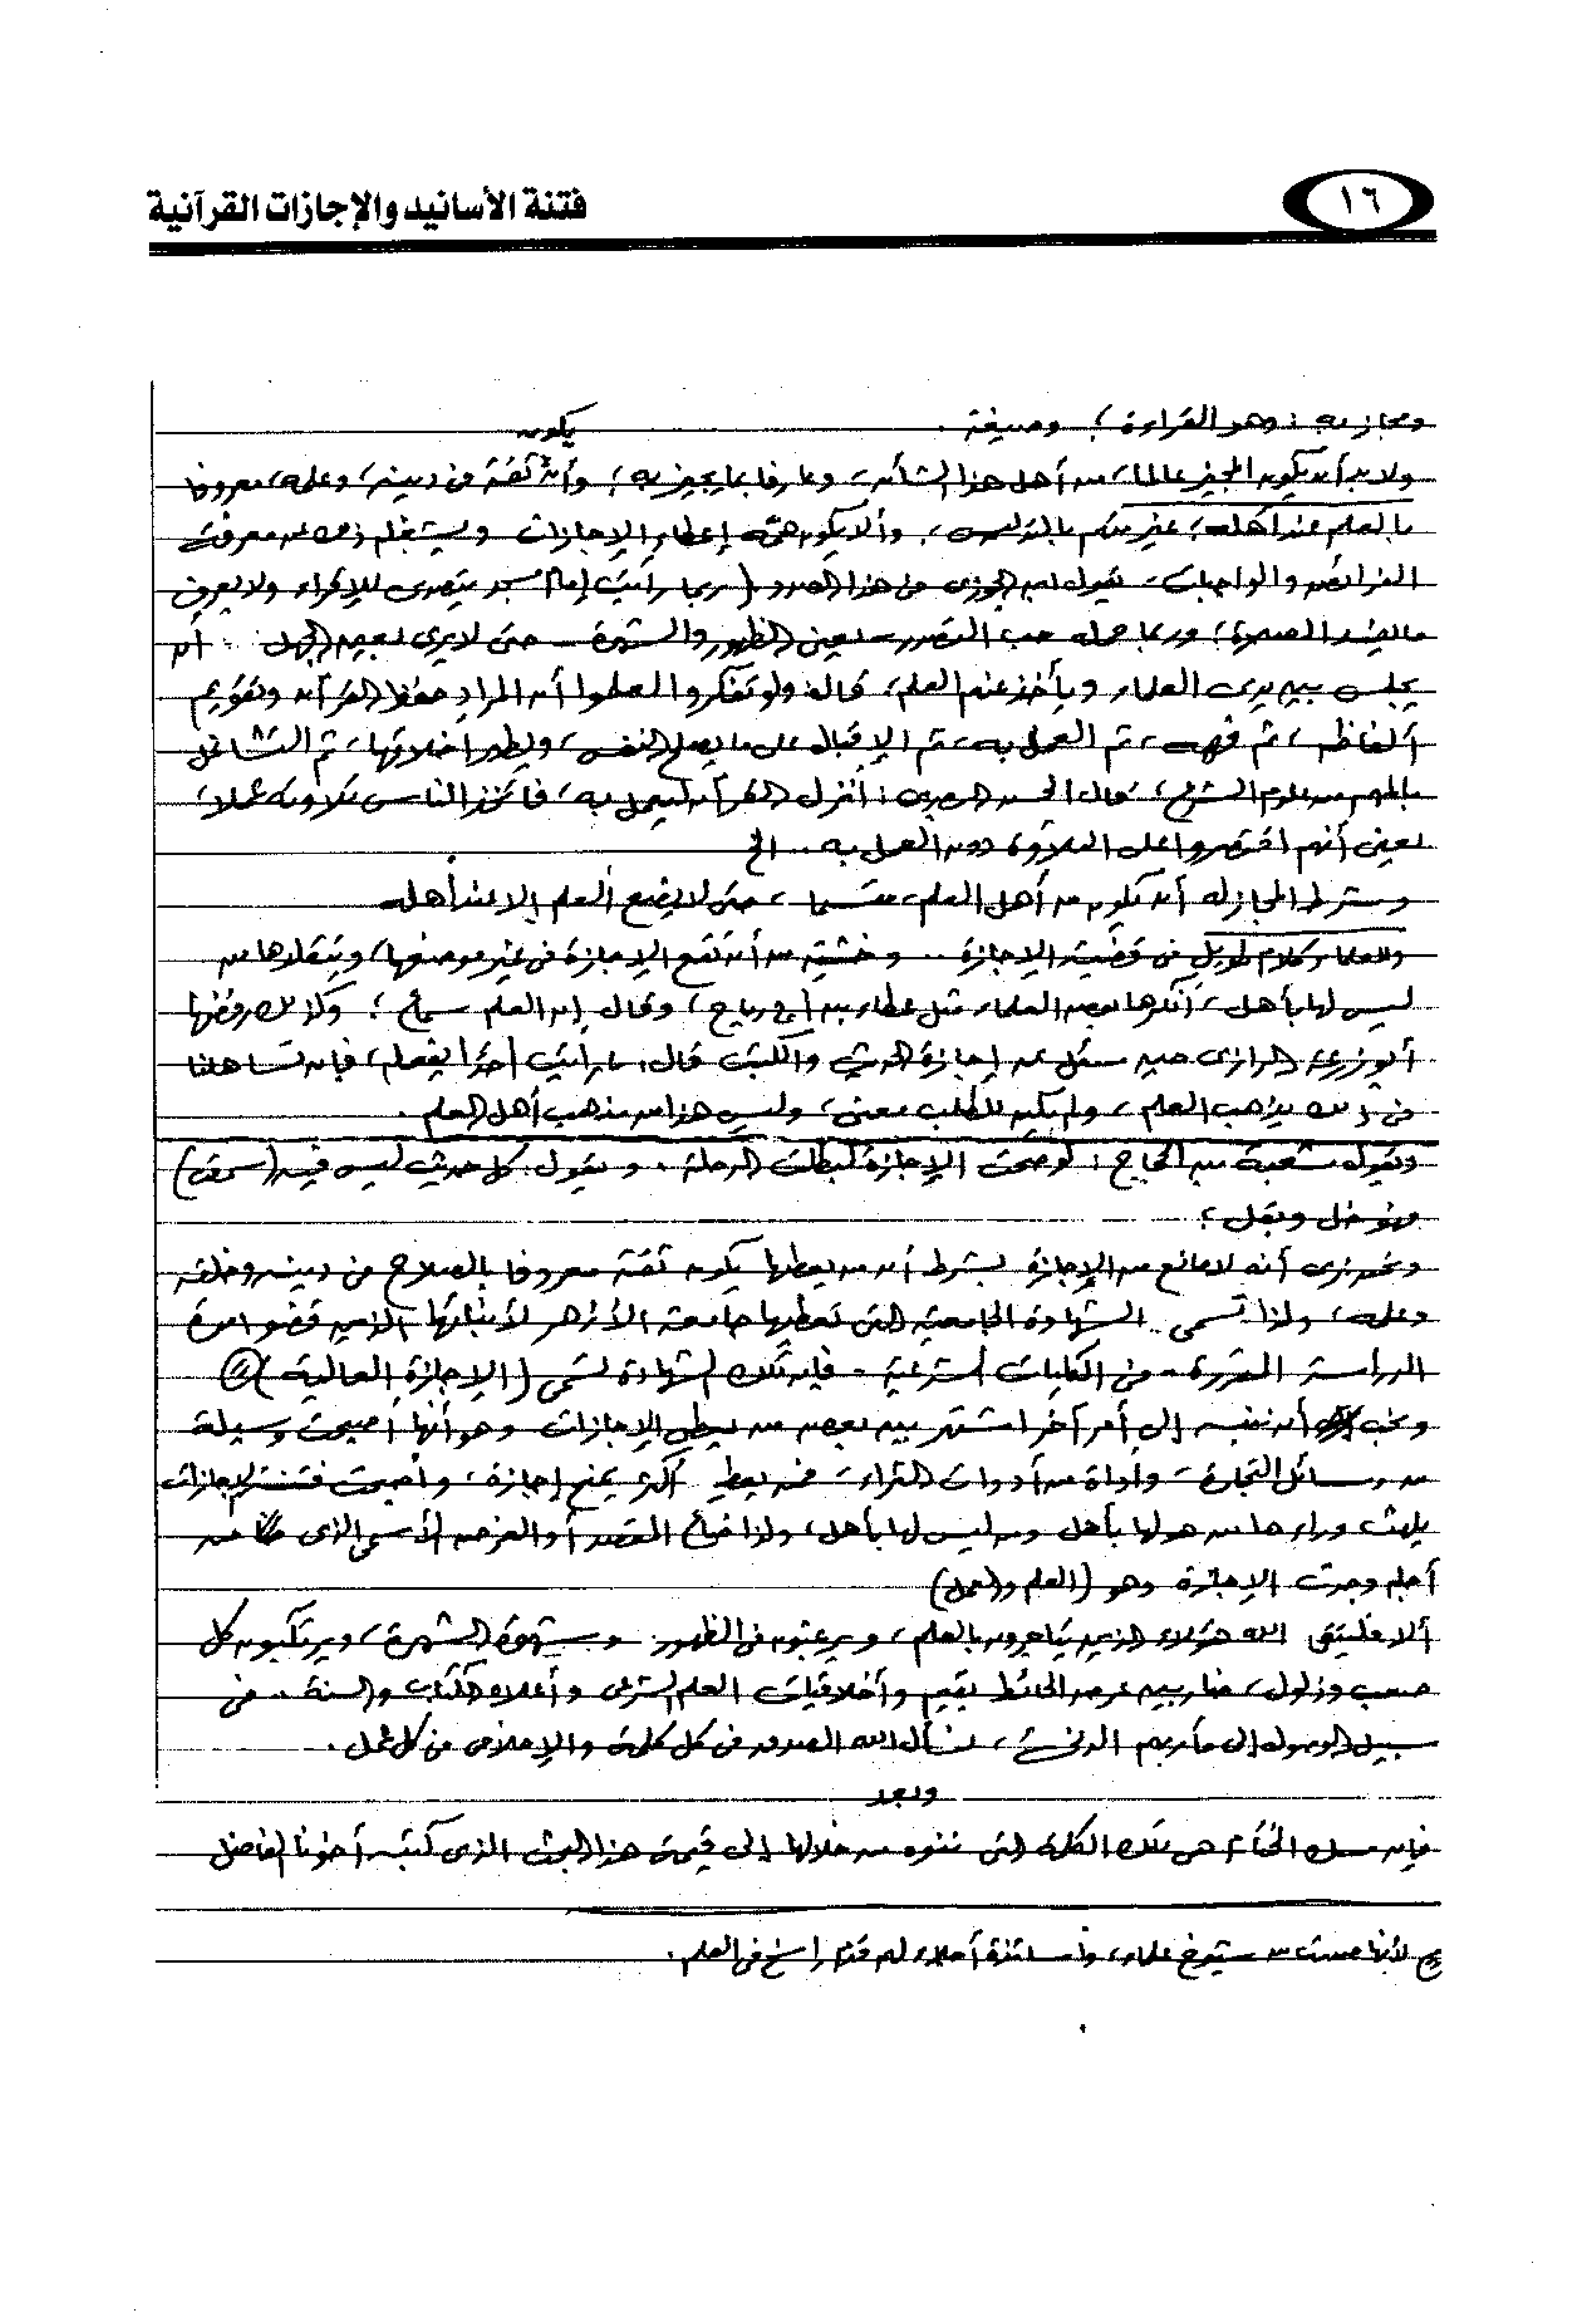 ١٦
فتنة الأسانيد والإجازات القرآنية
ومجاز به : وهو القراءة ؛ وصيغة .
ولابد أن يكون المجيز عالما، من أهل هذا الشأن، وعارفا بما يجيز به ؛ وأن يكون ثقة فى دينه، وعلمه، معروفا
بالعلم عند أهله؛ غير متهم بالتدليس، وألا يكون همّه إعطاء الإجازات ويشغله ذلك عن معرفة
الفرائض والواجبات، يقول ابن الجوزى فى هذا الصدد (ربما رأيت إمام مسجد يتصدى للإقراء ولا يعرف
ما يفسد الصلاة؛ وربما حمله حب التصدر - يعنى الظهور والشهرة - حتى لا يرى بعين الجهل .. أن
يجلس بين يدى العلماء ويأخذ عنهم العلم، قال: ولو تفكروا لعلموا أن المراد حفظ القرآن وتقويم
ألفاظه، ثم فهمه، ثم العمل به، ثم الإقبال على ما يصلح النفس، ويطهر أخلاقها، ثم التشاغل
بالمهم من علوم الشرع، قال الحسن البصرى: أنزل القرآن ليعمل به، فاتخذ الناس تلاوته عملا،
يعنى أنهم اقتصروا على التلاوة دون العمل به .. الخ
وشرط المجاز له أن يكون من أهل العلم، حتى لا يضع العلم إلا عند أهله
وللعلماء كلام طويل فى قضية الإجازة .. وخشية من أن تقع الإجازة فى غير موضعها، ويتقلدها من
ليس لها بأهل، أنكرها بعض العلماء مثل عطاء بن أبى رباح، وقال إن العلم سماع ؛ وكذلك رفضها
أبو زرعة الرازى حين سئل عن إجازة الحديث والكتب قال: ما رأيت أحدا يفعله، فإن تساهلنا
فى ذلك يذهب العلم، ولم يكن للطلب معنى، وليس هذا من مذهب أهل العلم .
ويقول شعبة بن الحجاج : لو صحت الإجازة لبطلت الرحلة . ويقول: كل حديث ليس فيه (سمعت)
فهو خل وبقل ؛
ونحن نرى أنه لا مانع من الإجازة بشرط أن من يعطيها يكون ثقة معروفا بالصلاح فى دينه وخلقه
وعلمه، ولذا تسمى الشهادة الجامعية التى تعطيها جامعة الأزهر لأبنائها الذين قضوا مدة
الدراسة المقررة - فى الكليات الشرعية - فإن تلك الشهادة تسمى (الإجازة العالية)
ونحب أن ننبه إلى أمر آخر اشتهر بين بعض من يعطى الإجازات وهو أنها أصبحت وسيلة
من وسائل التجارة، وأداة من أدوات الثراء، فمن يعطِ أكثر يمنح إجازة، وأصبحت فتنة الإجازات
يلهث وراءها من هو لها بأهل ومن ليس لها بأهل، ولذا ضاع المقصد أو الغرض الأسمى الذى من
أجله وجدت الإجازة وهو (العلم والعمل)
ألا فليتق الله هؤلاء الذين يتاجرون بالعلم، ويرغبون فى الظهور وشهوة الشهرة، ويرتكبون كل
صعب وذلول، ضاربين عرض الحائط بقيم وأخلاقيات العلم الشرعى وأعلام الكتاب والسنة .. فى
سبيل الوصول إلى مآربهم الرخيصة، نسأل الله الصدق فى كل كلمة والإخلاص فى كل عمل .
وبعد
فإن مسك الختام هى تلك الكلمة التى ننوه من خلالها إلى قيمة هذا البحث الذى كتبه أخونا الفاضل
لأنها من شيوخ علماء، وأساتذة أجلاء لهم قدم راسخ فى العلم .